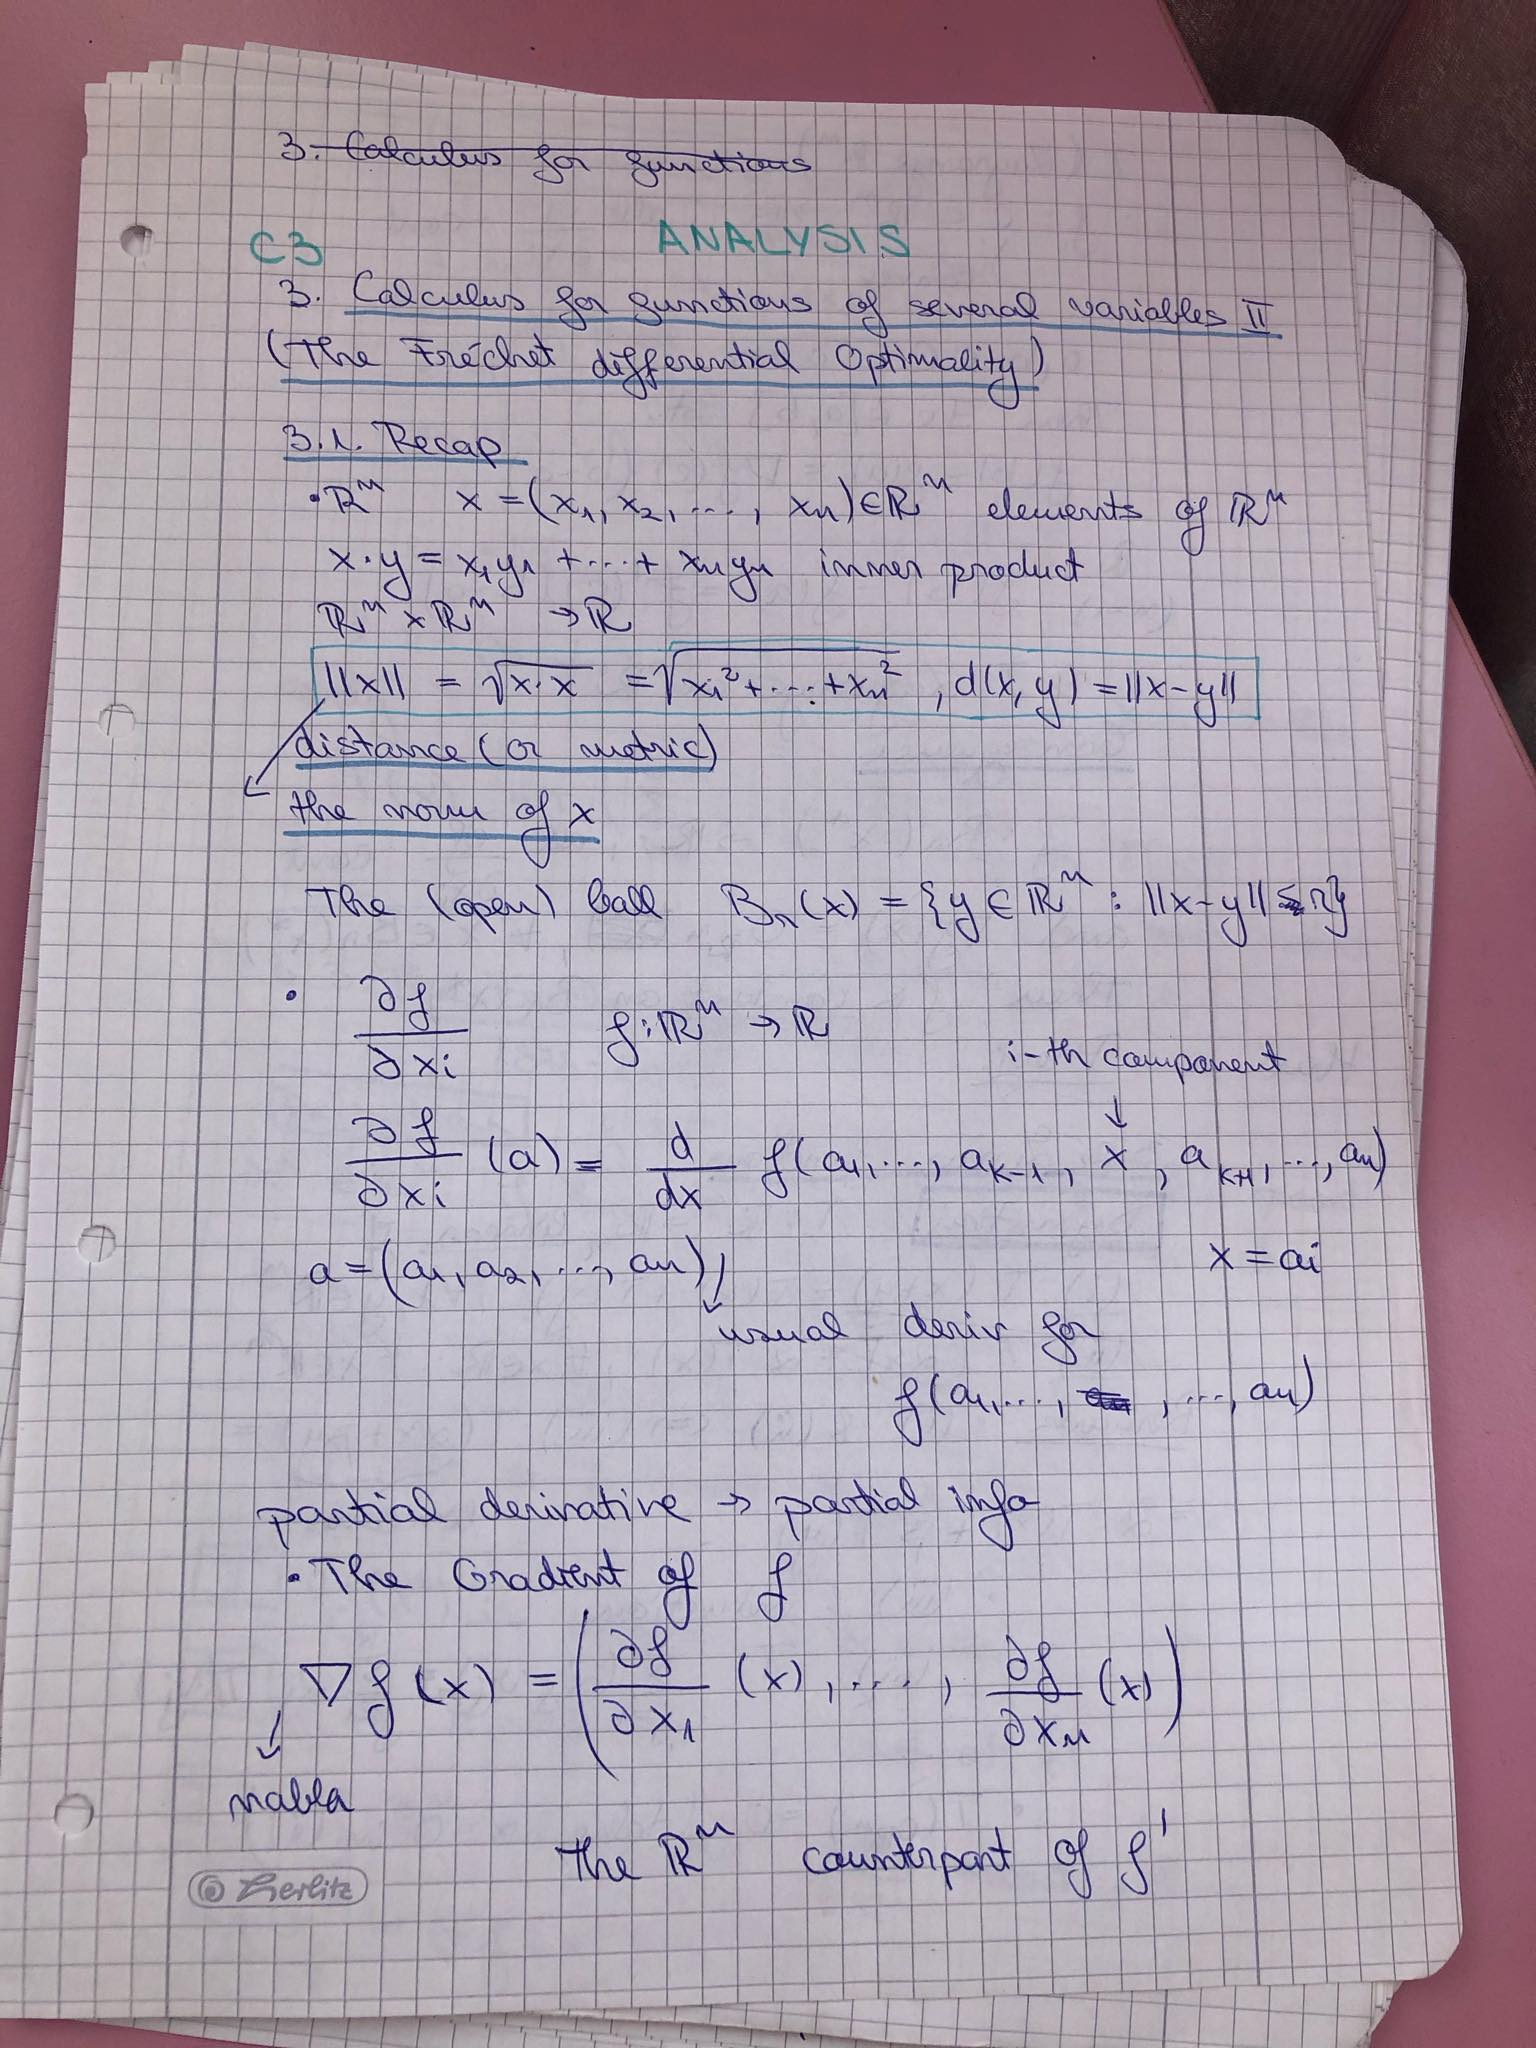 3. Calculus for functions
C3 ANALYSIS
3. Calculus for functions of several variables II
(The Fréchet differential Optimality)
3.1. Recap
• ℝⁿ x = (x₁, x₂, ..., xₙ) ∈ ℝⁿ elements of ℝⁿ
x·y = x₁y₁ + ... + xₙyₙ inner product
ℝⁿ × ℝⁿ → ℝ
||x|| = √(x·x) = √(x₁² + ... + xₙ²) , d(x, y) = ||x-y||
distance (or metric)
the norm of x
The (open) ball Bᵣ(x) = {y ∈ ℝⁿ : ||x-y|| < r}
• ∂f/∂xi f: ℝⁿ → ℝ
i-th component
↓
∂f/∂xi (a) = d/dx f(a₁, ..., aₖ₋₁, x, aₖ₊₁, ..., aₙ)
a = (a₁, a₂, ..., aₙ) x = ai
usual deriv for
f(a₁, ..., , ..., aₙ)
partial derivative → partial info
• The Gradient of f
∇f(x) = (∂f/∂x₁ (x), ..., ∂f/∂xₙ (x))
nabla
the ℝⁿ counterpart of f'
Herlitz